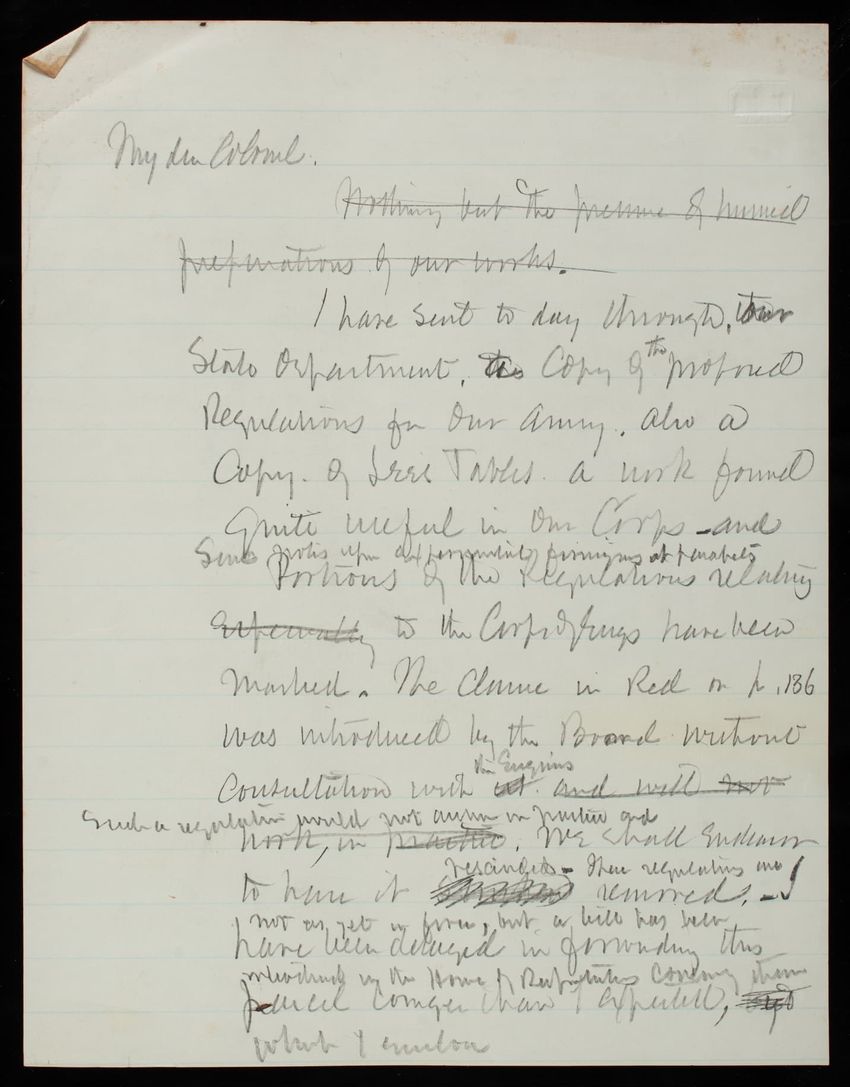 My dear Colonel.
Nothing but the pressure of
preparations of our works.
I have sent to day through, our
State Department, the Copy of the proposed
Regulations for Our Army, also a
Copy. of Tables. a work found
quite useful in Our Corps - and
Some notes upon experimental firings at parapets
Portions of the Regulations relating
especially to the Corps of Engrs have been
marked. The Clause in Red on p. 136
was introduced by the Board without
the Engineers
Consultation with us. and will not
Such a regulation would not answer in practice and
work, in practice. We shall Endeavor
rescinded - These regulations are
to have it removed. -
not as yet in force, but a bill has been
have been delayed in forwarding this
introduced in the House of Representatives them
parcel longer than I expected,
which I enclose